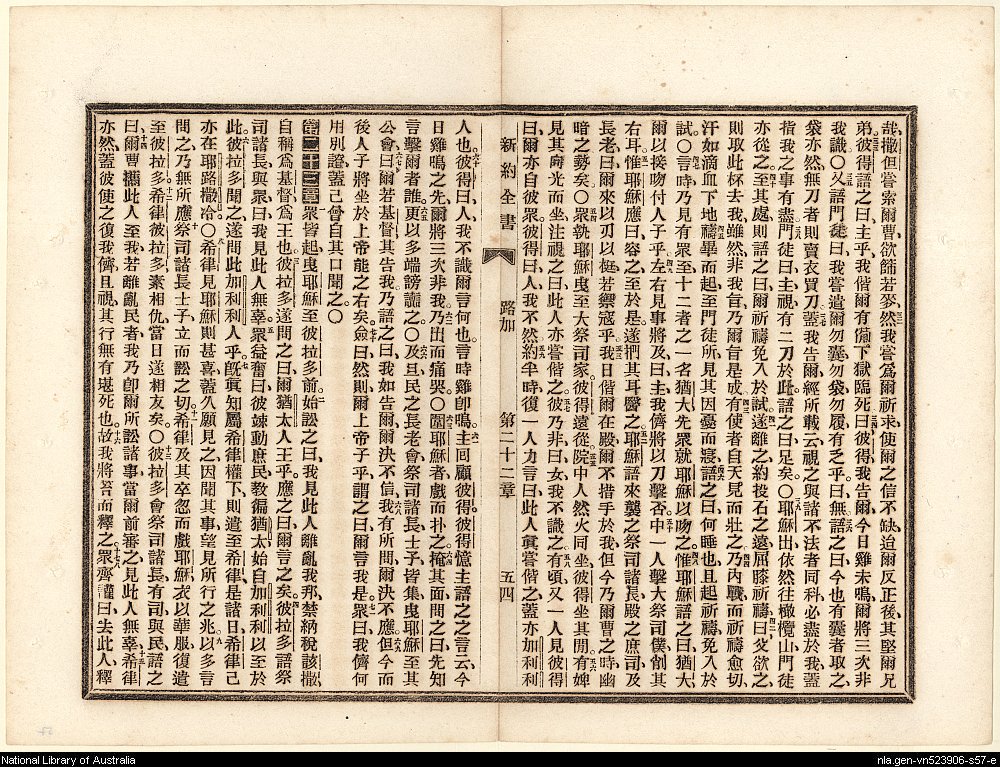 哉撒但嘗索爾曹欲篩若麥然我嘗爲爾祈求使爾之信不缺迨爾反正後其堅爾兄
弟彼得語之曰主乎我偕爾有備下獄臨死曰彼得我告爾今日雞未鳴爾將三次非
我識〇又語門徒曰我嘗遣爾勿囊勿袋勿履有乏乎曰無語之曰今也有囊者取之
袋亦然無刀者則賣衣買刀蓋我告爾經所載云視之與諸不法者同科必盡於我蓋
指我之事有盡門徒曰主視有二刀於此語之曰足矣〇耶穌出依然往橄欖山門徒
亦從之至其處則語之曰爾祈禱免入於試遂離之約投石之遠屈膝祈禱曰父欲之
則取此杯去我雖然非我旨乃爾旨是成有使者自天見而壯之乃內戰而祈禱愈切
汗如滴血下地禱畢而起至門徒所見其因憂而寢語之曰何睡也且起祈禱免入於
試〇言時乃見有眾至十二者之一名猶大先眾就耶穌以吻之惟耶穌語之曰猶大
爾以接吻付人子乎左右見事將及曰主我儕將以刀擊否中一人擊大祭司僕削其
右耳惟耶穌應曰容之至於是遂捫其耳醫之耶穌語來襲之祭司諸長殿之庶司及
長老曰爾來以刃以梃若禦寇乎我日偕爾在殿爾不措手於我但今乃爾曹之時幽
暗之勢矣〇眾執耶穌曳至大祭司家彼得遠從院中人然火同坐彼得坐其間有婢
見其向光而坐注視之曰此人亦嘗偕之彼乃非曰女我不識之有頃又一人見彼得
曰爾亦自彼眾彼得曰人我不然約半時復一人力言曰此人眞嘗偕之蓋亦加利利
新約全書 路加 第二十二章 五四
人也彼得曰人我不識爾言何也言時雞卽鳴主回顧彼得彼得憶主語之之言云今
日雞鳴之先爾將三次非我乃出而痛哭〇圄耶穌者戲而扑之掩其面問之曰先知
言擊爾者誰更以多端謗讟之〇及旦民之長老會祭司諸長士子皆集曳耶穌至其
公會曰爾若基督其告我乃語之曰我如告爾爾決不信我有所問爾決不應但今而
後人子將坐於上帝能之右矣僉曰然則爾上帝子乎謂之曰爾言我是眾曰我儕何
用別證蓋己嘗自其口聞之〇
第二十三章眾皆起曳耶穌至彼拉多前始訟之曰我見此人離亂我邦禁納稅該撒
自稱爲基督爲王也彼拉多遂問之曰爾猶太人王乎應之曰爾言之矣彼拉多語祭
司諸長與眾曰我見此人無辜眾益奮曰彼竦動庶民敎徧猶太始自加利利以至於
此彼拉多聞之遂問此加利利人乎旣眞知屬希律權下則遣至希律是諸日希律己
亦在耶路撒冷〇希律見耶穌則甚喜蓋久願見之因聞其事望見所行之兆以多言
問之乃無所應祭司諸長士子立而訟之切希律及其卒忽而戲耶穌衣以華服復遣
至彼拉多希律彼拉多素相仇當日遂相友矣〇彼拉多會祭司諸長有司與民語之
曰爾曹攜此人至我若離亂民者我乃卽爾所訟諸事當爾前審之見此人無辜希律
亦然蓋彼使之復我儕且視其行無有㤠死也故我將笞而釋之眾齊讙曰去此人釋
National Library of Australia
nla.gen-vn523906-s57-e